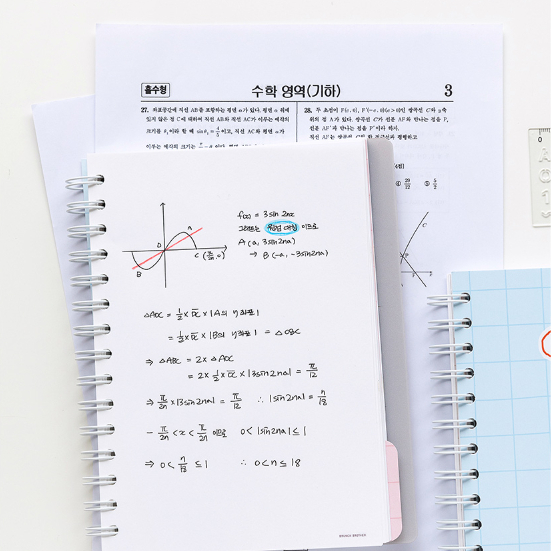 홀수형
수학 영역(기하)
3
27. 좌표공간에 직선 AB를 포함하는 평면 α가 있다. 평면 α 위에
있지 않은 점 C에 대하여 직선 AB와 직선 AC가 이루는 예각의
크기를 θ₁이라 할 때 sin θ₁ = 4/5 이고, 직선 AC와 평면 α가
이루는 예각의 크기는
28. 두 초점이 F(c, 0), F'(-c, 0)(c>0)인 쌍곡선 C와 y축
위의 점 A가 있다. 쌍곡선 C가 선분 AF와 만나는 점을 P,
선분 AF'과 만나는 점을 P'이라 하자.
직선 AF는 쌍곡선
평행하고
f(x) = 3sin 2nx
그래프는 원점 대칭 이므로
A (a, 3sin2na)
→ B (-a, -3sin2na)
A
O
C (π/2n, 0)
B
△AOC = 1/2 × OC × |A의 y좌표|
= 1/2 × OC × |B의 y좌표| = △OBC
⇒ △ABC = 2 × △AOC
= 2 × 1/2 × OC × |3sin2na| = π/12
⇒ π/2n × |3sin2na| = π/12 ∴ |sin2na| = n/18
- π/2n < x < π/2n 이므로 0 < |sin2na| ≤ 1
⇒ 0 < n/18 ≤ 1 ∴ 0 < n ≤ 18